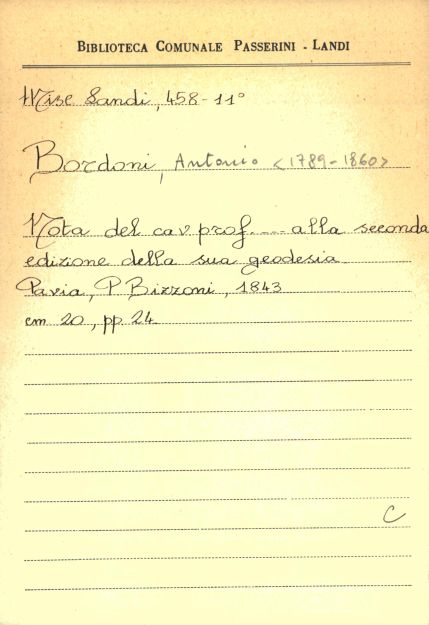 BIBLIOTECA COMUNALE PASSERINI - LANDI
Misc Landi, 458-11°
Bordoni, Antonio <1789-1860>
Nota del cav prof.... alla seconda
edizione della sua geodesia
Pavia, P Bizzoni, 1843
cm 20, pp 24
C